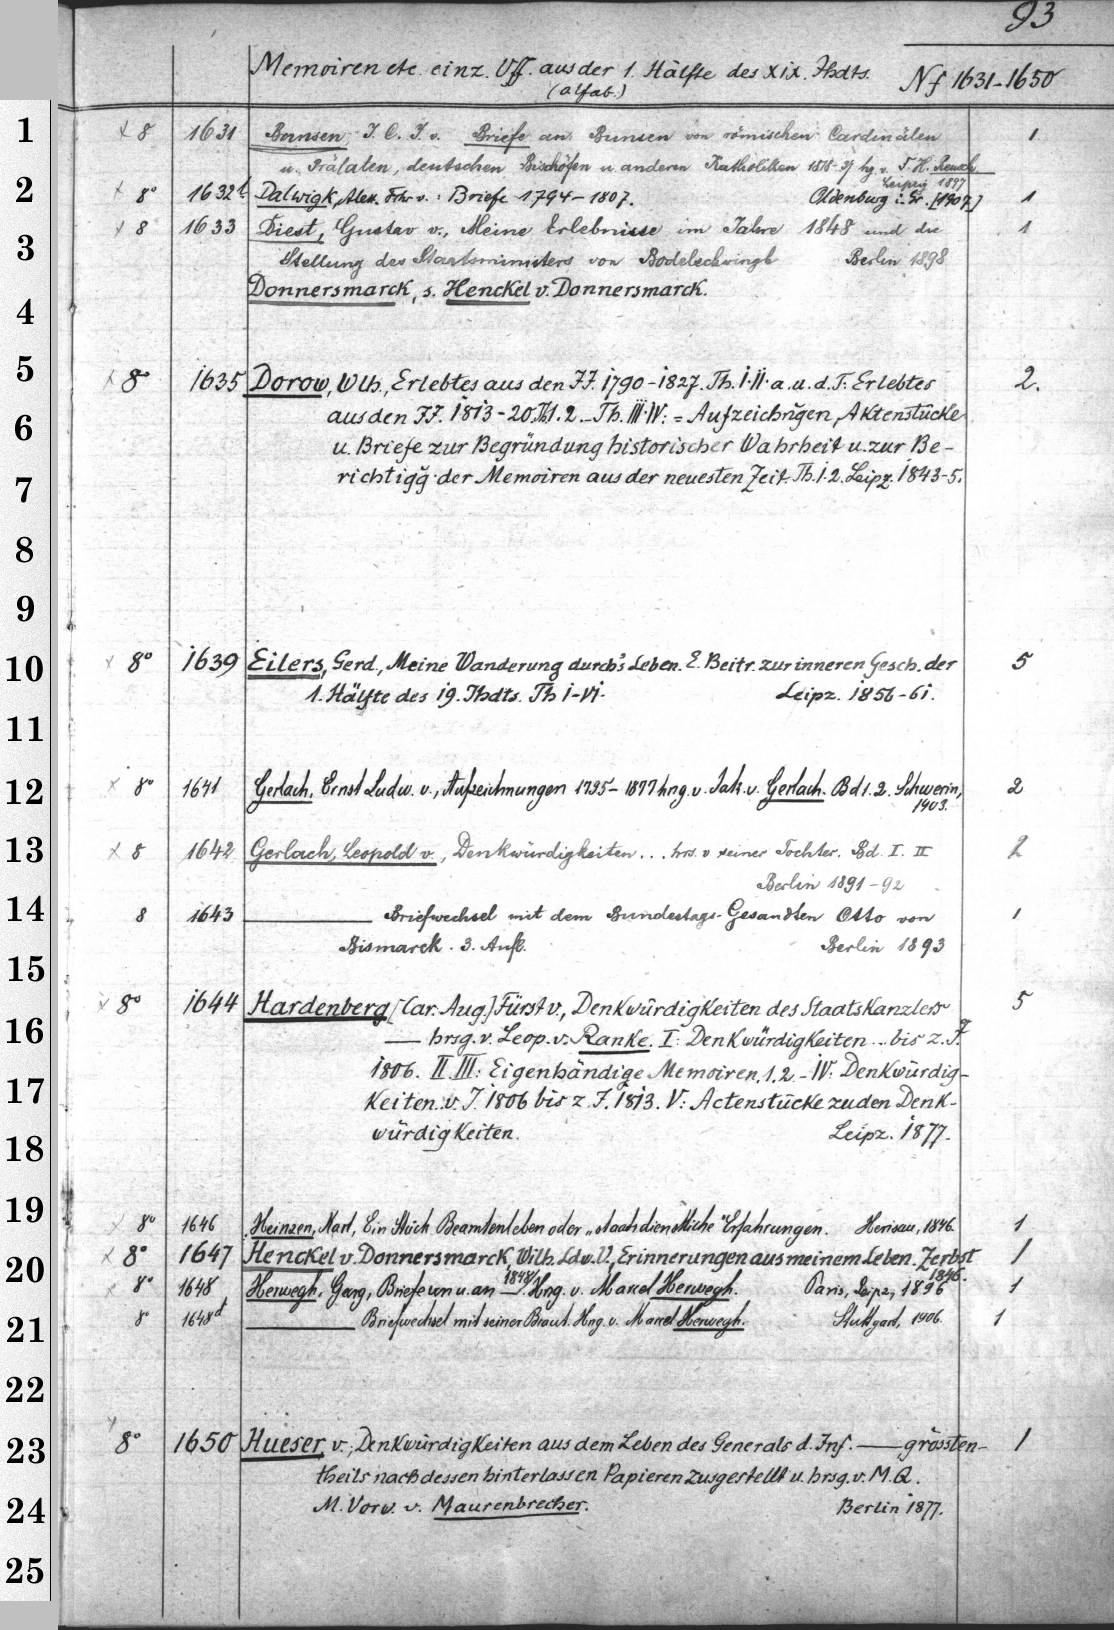 93
Memoiren etc. einz. Vff. aus der 1. Hälfte des XIX. Jhdts. Nf 1631-1650
(alfab.)
1 x 8 1631 Bunsen, J. C. J. v. Briefe an Bunsen von römischen Cardinälen 1
u. Prälaten, deutschen Bischöfen u. anderen Katholiken 1818-37 hg. v. F. H. Reusch
Leipzig 1897
2 x 8° 1632 Dalwigk, Alex. Frhr v.: Briefe 1794-1807. Oldenburg i. Gr. [1907] 1
3 x 8 1633 Diest, Gustav v., Meine Erlebnisse im Jahre 1848 und die 1
Stellung des Staatsministers von Bodelschwingh Berlin 1898
4 Donnersmarck, s. Henckel v. Donnersmarck.
5 x 8° 1635 Dorow, Wlh., Erlebtes aus den JJ. 1790-1827. Th. I.II. a. u. d. T: Erlebtes 2.
6 aus den JJ. 1813-20. Th. 1. 2. - Th. III.IV: = Aufzeichngen, Aktenstücke
u. Briefe zur Begründung historischer Wahrheit u. zur Be-
7 richtigg. der Memoiren aus der neuesten Zeit. Th. 1. 2. Leipz. 1843-5.
8
9
10 x 8° 1639 Eilers, Gerd., Meine Wanderung durch's Leben. E. Beitr. zur inneren Gesch. der 5
1. Hälfte des 19. Jhdts. Th I-VI. Leipz. 1856-61.
11
12 x 8° 1641 Gerlach, Ernst Ludw. v., Aufzeichnungen 1795-1877 hrsg. v. Jak. v. Gerlach. Bd 1. 2. Schwerin, 2
1903.
13 x 8 1642 Gerlach, Leopold v., Denkwürdigkeiten ... hrs. v. seiner Tochter. Bd. I. II 2
Berlin 1891-92
14 8 1643 —— Briefwechsel mit dem Bundestags-Gesandten Otto von 1
Bismarck. 3. Aufl. Berlin 1893
15
x 8° 1644 Hardenberg, [Car. Aug.] Fürst v., Denkwürdigkeiten des Staatskanzlers 5
16 — hrsg. v. Leop. v. Ranke. I: Denkwürdigkeiten ... bis z. J.
1806. II. III: Eigenhändige Memoiren. 1. 2. - IV: Denkwürdig-
17 keiten v. J. 1806 bis z. J. 1813. V: Actenstücke zu den Denk-
18 würdigkeiten. Leipz. 1877.
19 8° 1646 Heinzen, Karl, Ein Stück Beamtenleben oder „staatsdienstliche" Erfahrungen. Herisau, 1846. 1
20 x 8° 1647 Henckel v. Donnersmarck, Wilh. Ldw. V., Erinnerungen aus meinem Leben. Zerbst 1
1846.
x 8° 1648 Herwegh, Georg, Briefe von u. an — 1848. Hrsg. v. Marcel Herwegh. Paris, Leipz, 1896 1
21 8° 1648d —— Briefwechsel mit seiner Braut. Hrsg. v. Marcel Herwegh. Stuttgart, 1906. 1
22
23 x 8° 1650 Hueser, v., Denkwürdigkeiten aus dem Leben des Generals d. Inf. —— grössten- 1
theils nach dessen hinterlassen Papieren zusgestellt u. hrsg. v. M. Q.
24 M. Vorw. v. Maurenbrecher. Berlin 1877.
25